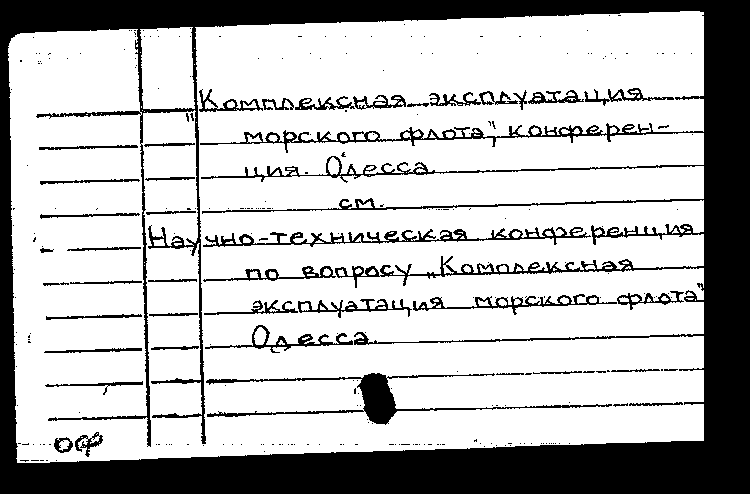 „Комплексная эксплуатация
морского флота", конферен-
ция. Одесса.
см.
Научно-техническая конференция
по вопросу „Комплексная
эксплуатация морского флота"
Одесса.
ОФ